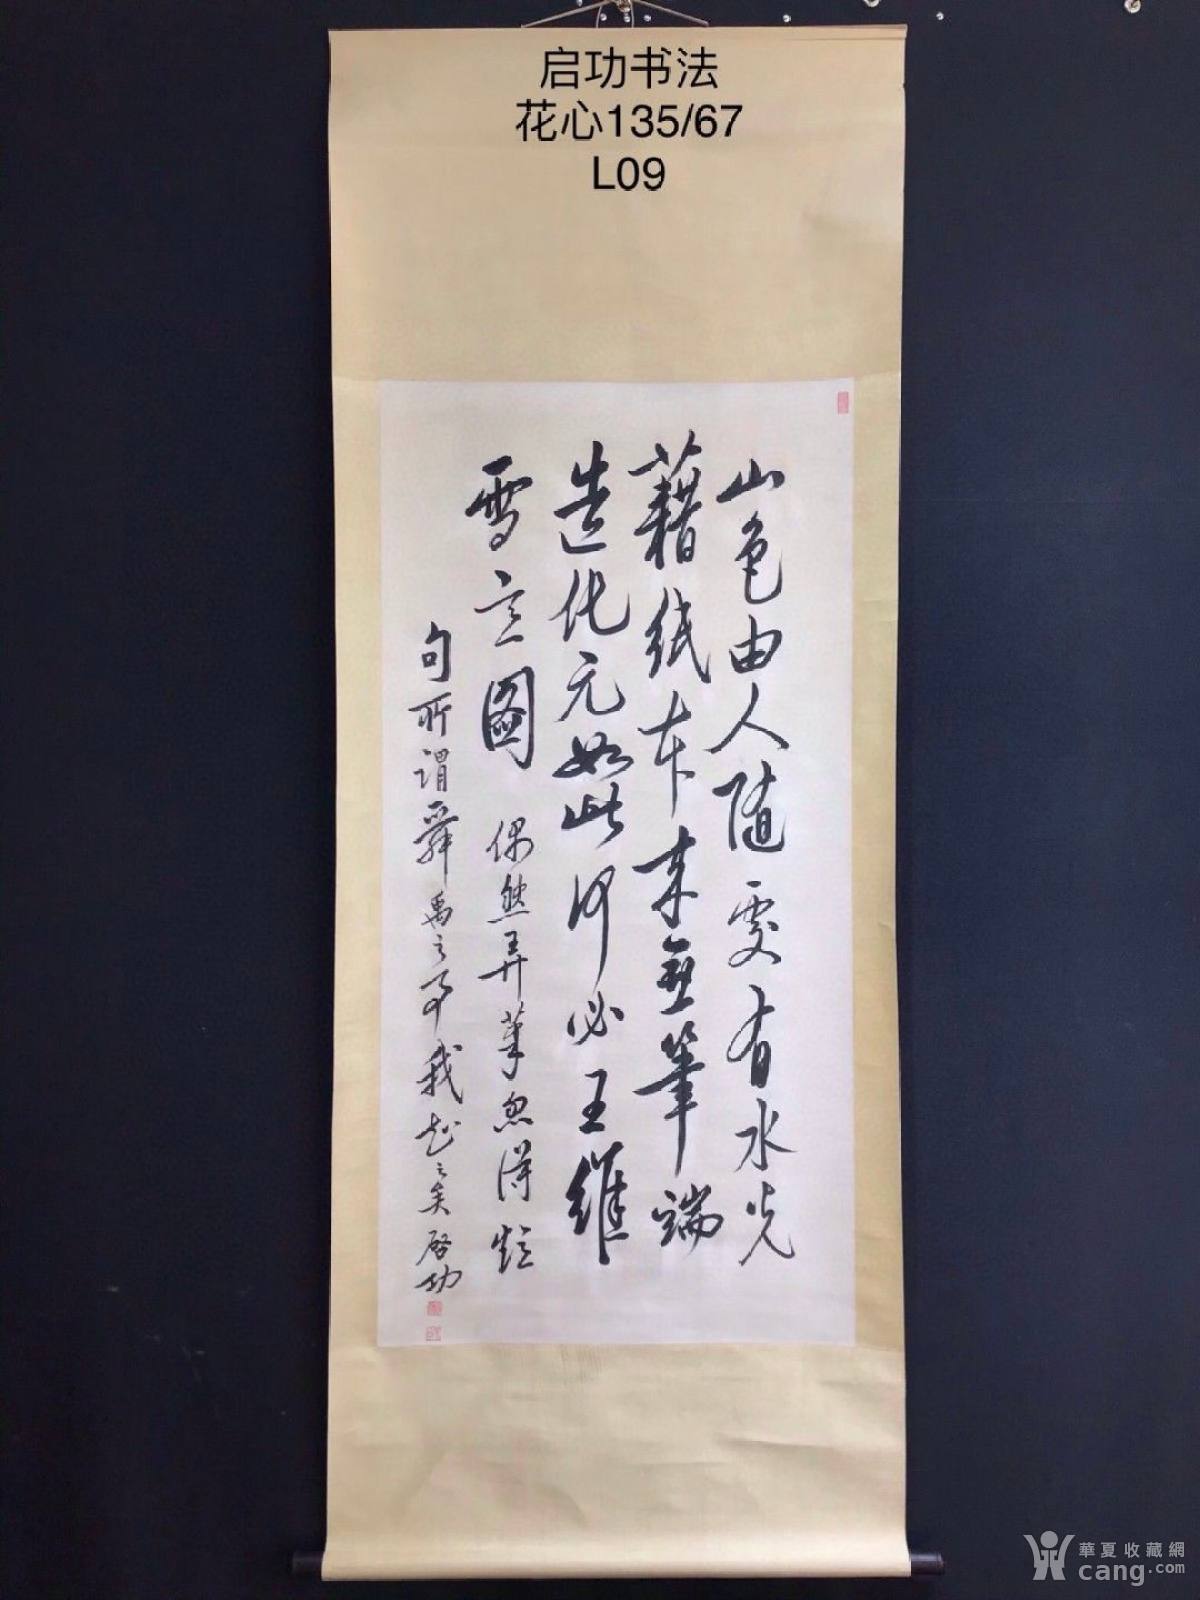 启功书法
花心135/67
L09
山色由人随處有水光
藉紙本来無筆端
造化元如此何必王維
雪圖 偶然弄筆忽得短
句所謂舜禹之事我知之矣 启功
華夏收藏網
cang.com